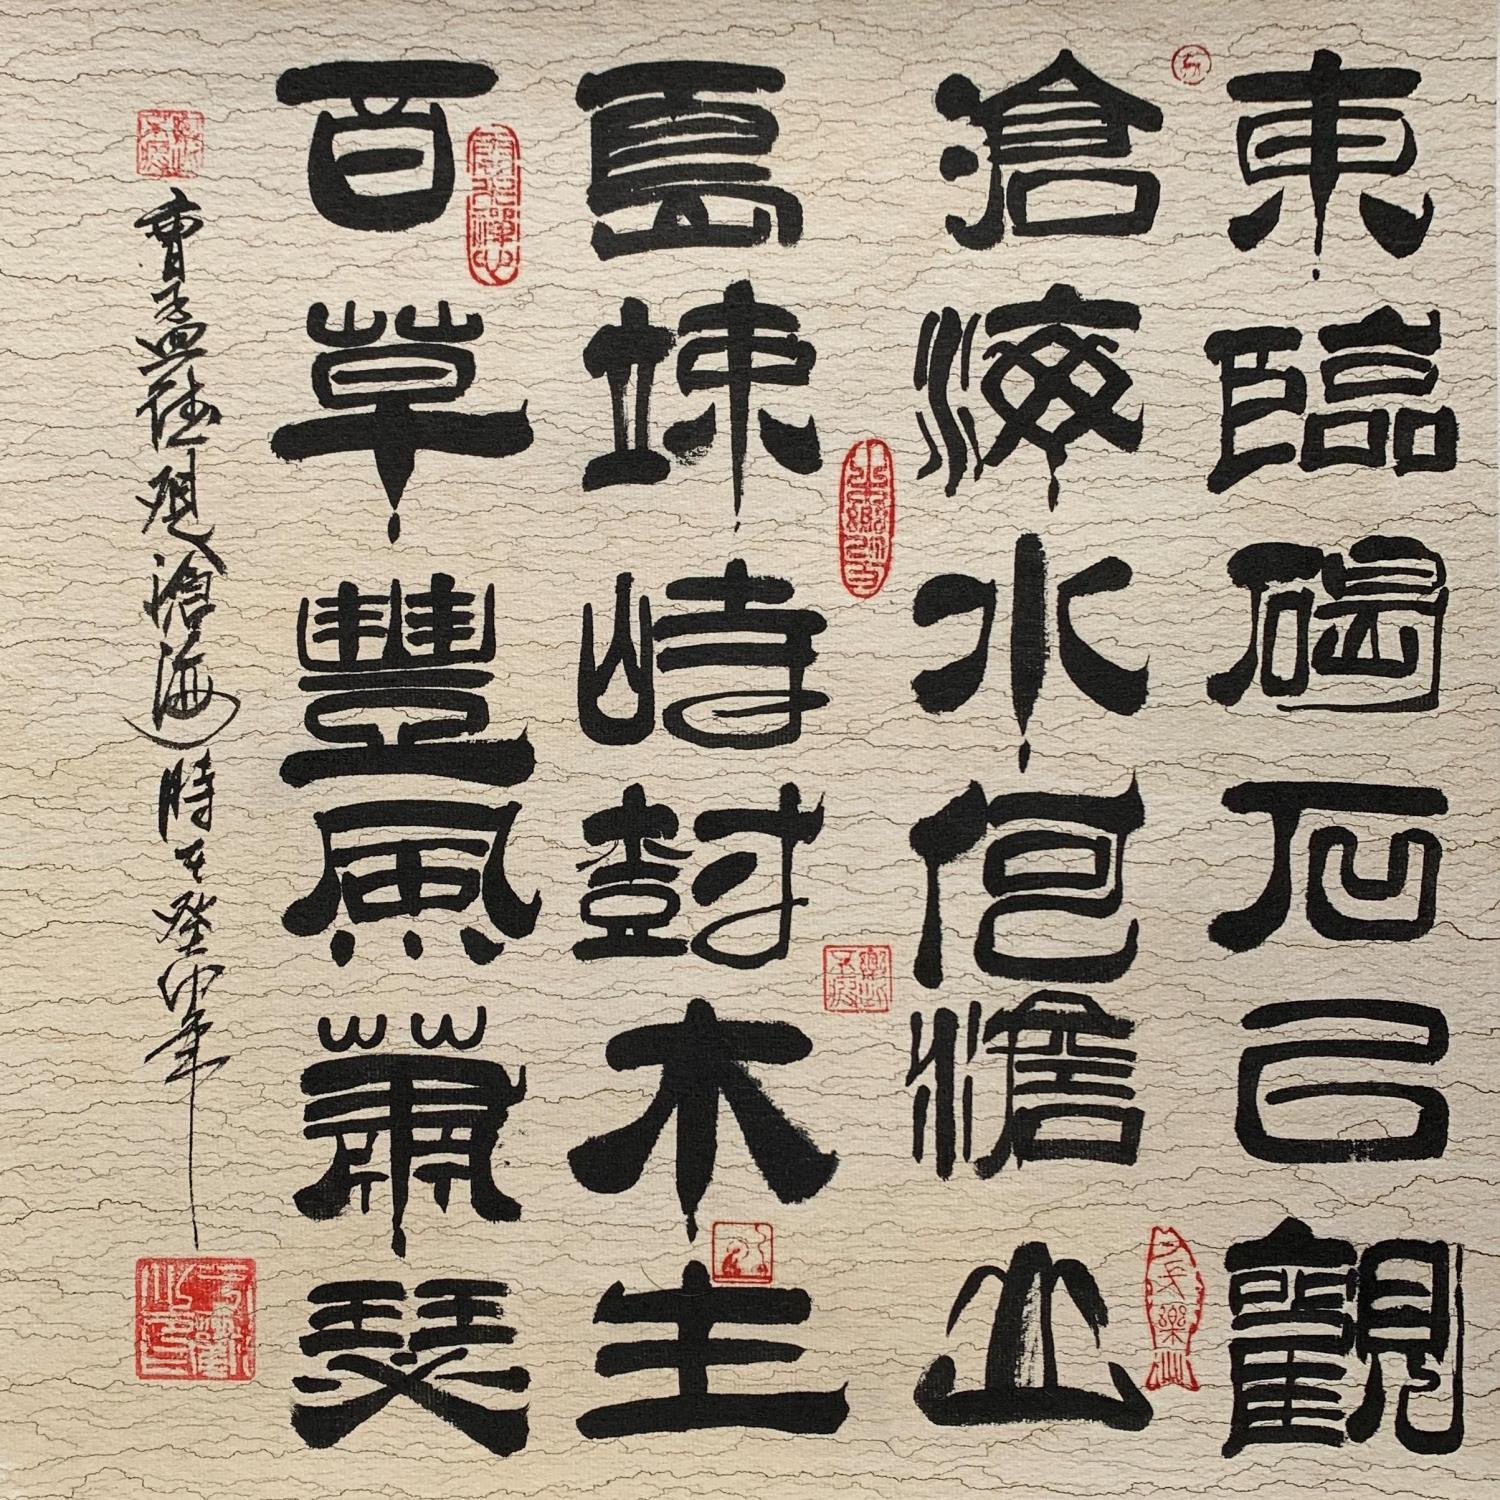 東臨碣石㠯觀
滄海水何澹山
島竦峙尌木生
百草豐風蕭瑟
曹孟德觀滄海時在癸卯年